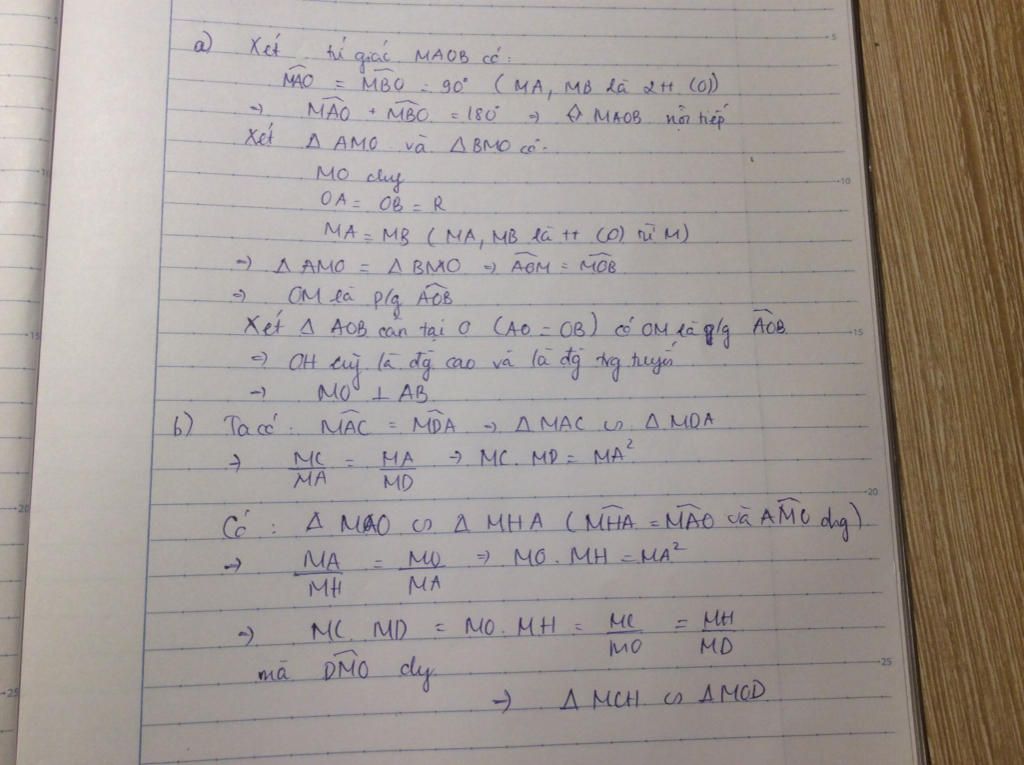 a) Xét tứ giác MAOB có:
MAO = MBO = 90° (MA, MB là 2tt (O))
→ MAO + MBO = 180° → ◇ MAOB nội tiếp
Xét Δ AMO và Δ BMO có:
MO chg
OA = OB = R
MA = MB (MA, MB là tt (O) từ M)
→ Δ AMO = Δ BMO → AOM = MOB
→ OM là p/g AOB
Xét Δ AOB cân tại O (AO = OB) có OM là p/g AOB
→ OH cũg là đg cao và là đg trg tuyến
→ MO ⊥ AB
b) Ta có: MAC = MDA → Δ MAC ∽ Δ MDA
→ MC/MA = MA/MD → MC. MD = MA²
Có: Δ MAO ∽ Δ MHA (MHA = MAO và AMO chg)
→ MA/MH = MO/MA → MO. MH = MA²
→ MC. MD = MO. MH = MC/MO = MH/MD
mà DMO chg
→ Δ MCH ∽ Δ MOD